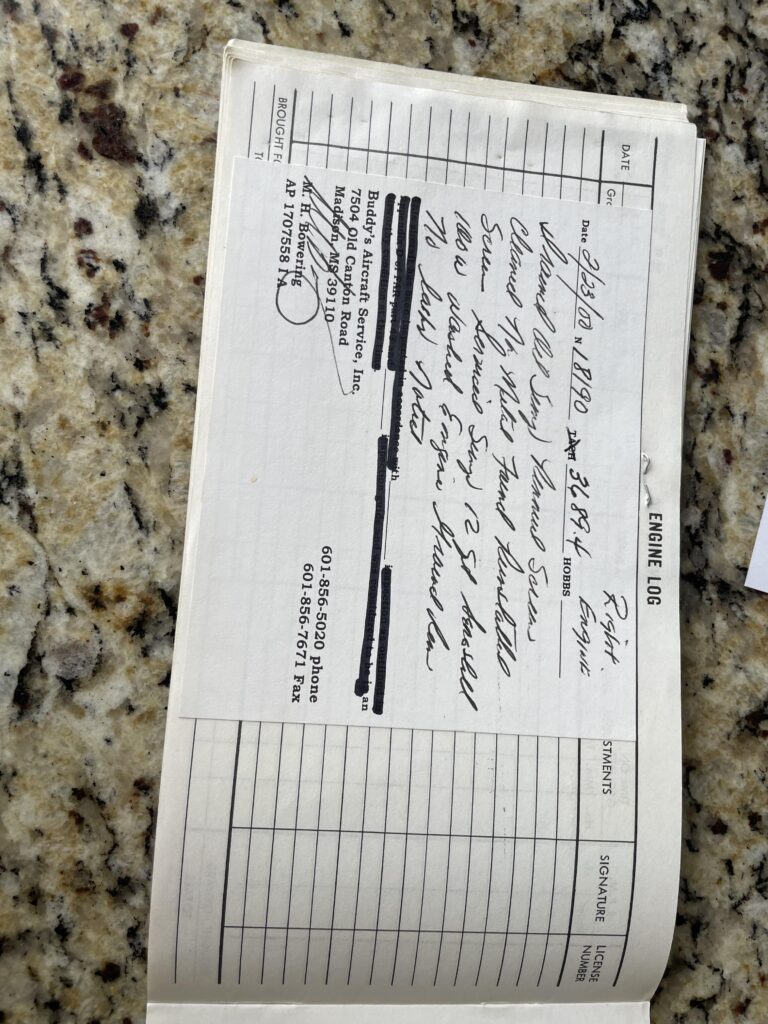 ENGINE LOG
DATE
STMENTS
SIGNATURE
LICENSE
NUMBER
BROUGHT
Right
Engine
Date 2/23/00 N 18190 3689.4 HOBBS
Drained Oil Sump Removed Screen
Cleaned No Metal Found Reinstalled
Screen Serviced Sump 12 qt
100W Washed Engine Ground Run
No Leaks Noted
with
an
Buddy's Aircraft Service, Inc.
7504 Old Canton Road
Madison, MS 39110
M. H. Bowering
AP 1707558 IA
601-856-5020 phone
601-856-7671 Fax